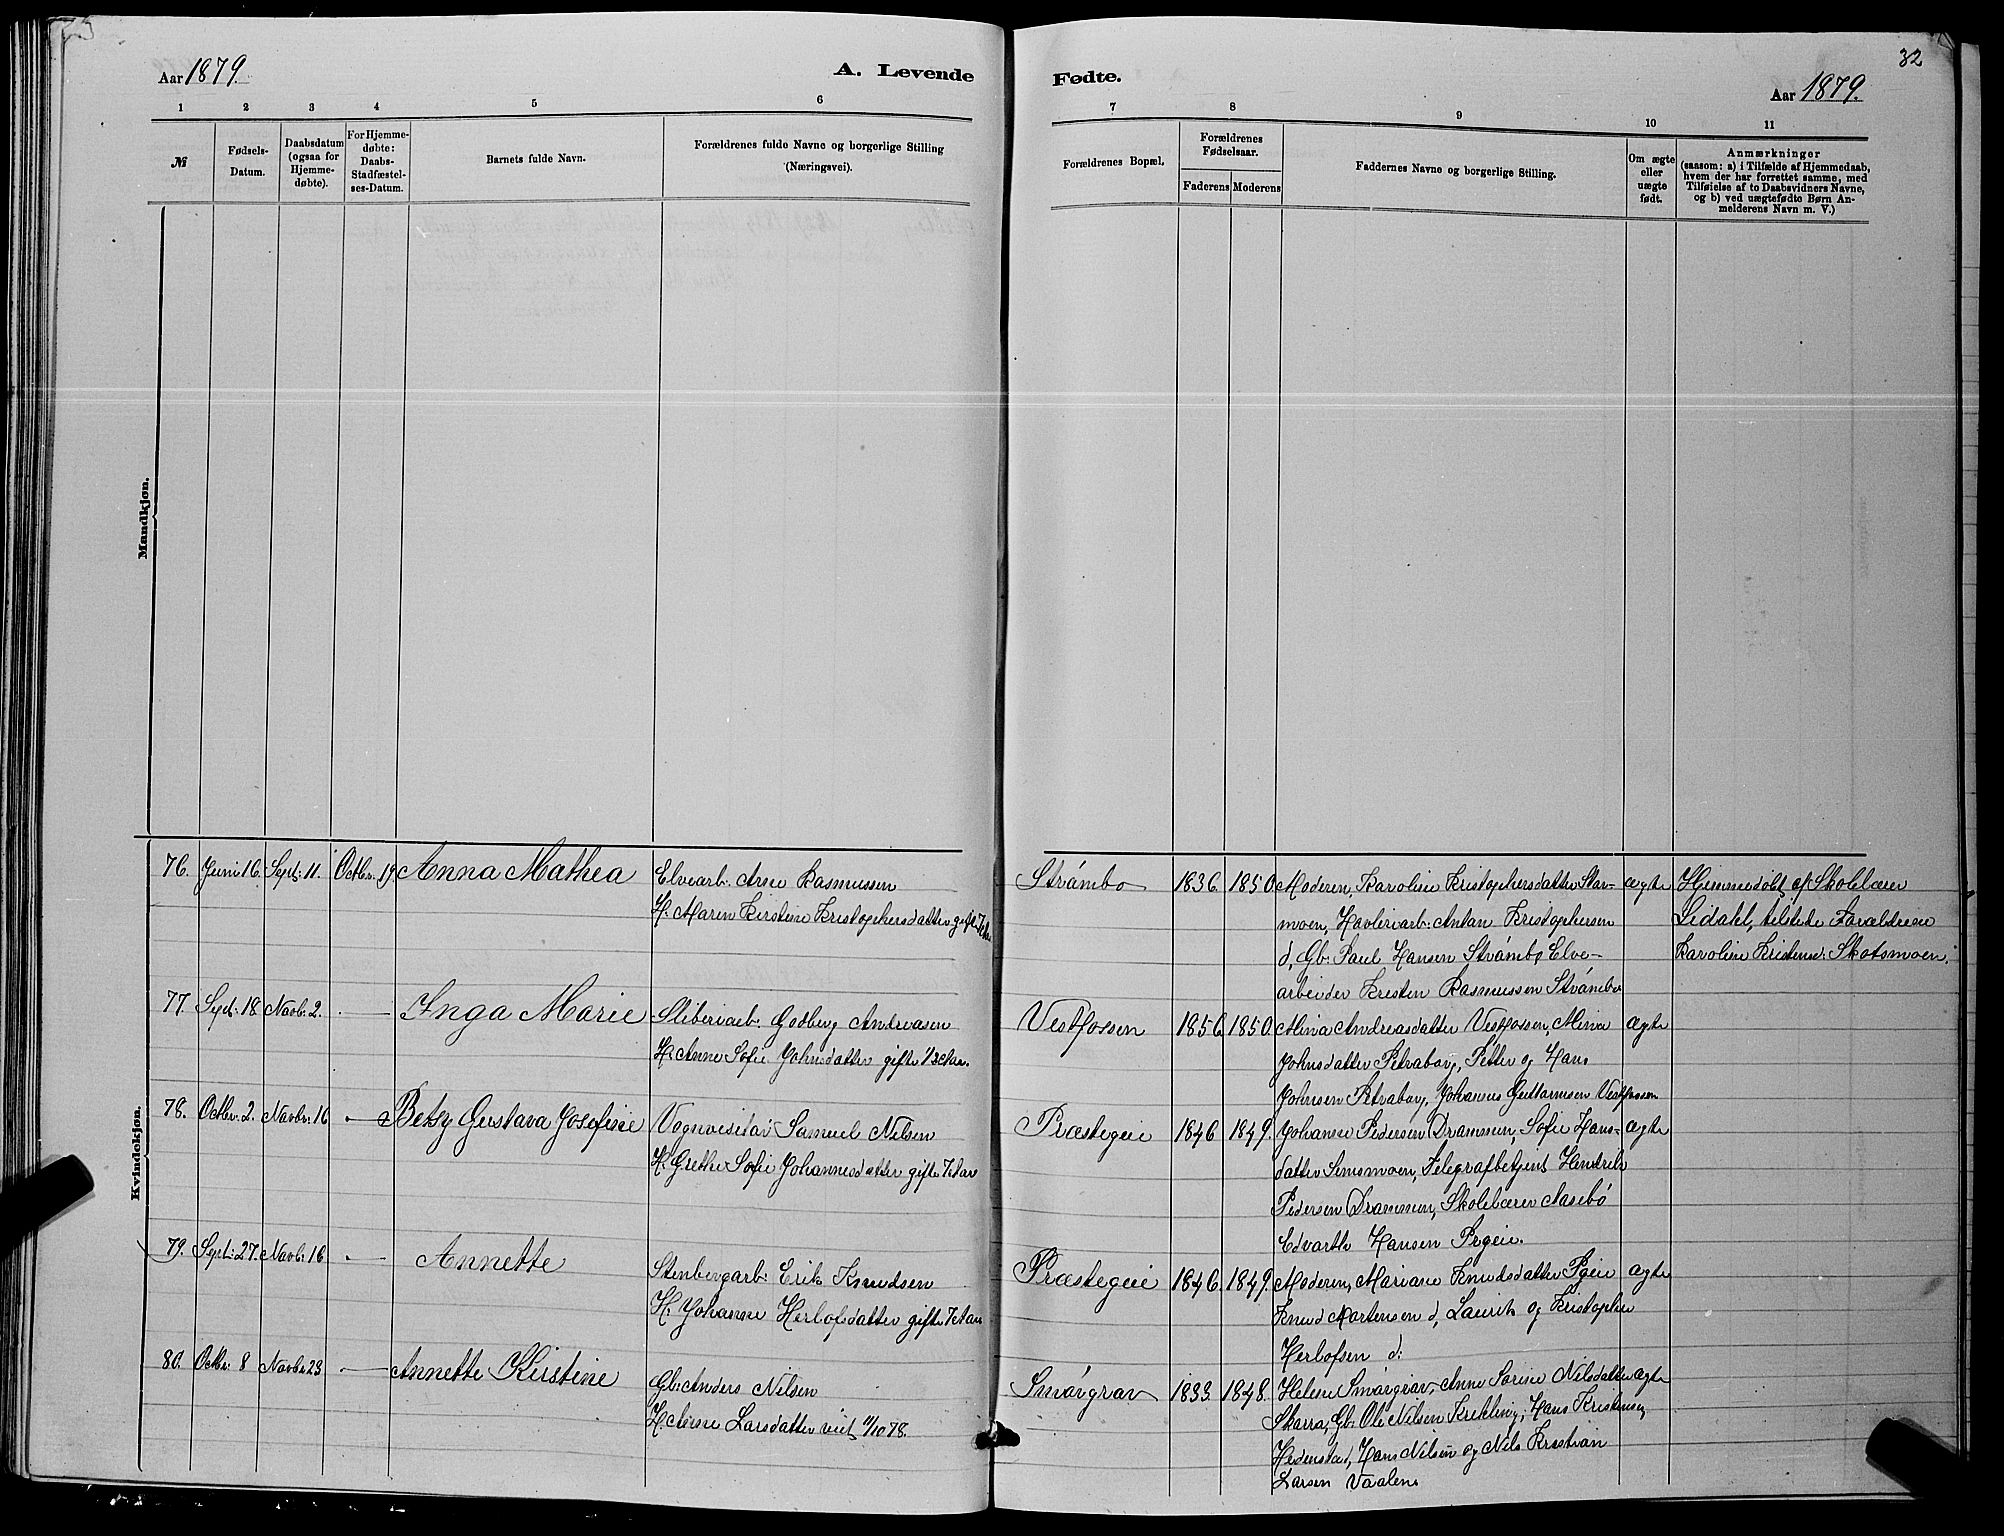 32
Aar 1879.
A. Levende
Fødte.
Aar 1879.
1 2 3 4 5 6
7 8 9 10 11
№
Fødsels-
Datum.
Daabsdatum
(ogsaa for
Hjemme-
døbte).
For Hjemme-
døbte:
Daabs-
Stadfæstel-
ses-Datum.
Barnets fulde Navn.
Forældrenes fulde Navne og borgerlige Stilling
(Næringsvei).
Forældrenes Bopæl.
Forældrenes
Fødselsaar.
Faderens
Moderens
Faddernes Navne og borgerlige Stilling.
Om ægte
eller
uægte
født.
Anmærkninger
(saasom: a) i Tilfælde af Hjemmedaab,
hvem der har forrettet samme, med
Tilføielse af to Daabsvidners Navne,
og b) ved uægtefødte Børn An-
melderens Navn m. V.)
Mandkjøn.
Kvindekjøn.
76. Juni 16. Sept: 11. Octbr. 19 Anna Mathea
Elvearb. Arne Rasmussen
H. Maren Kirstine Kristophersdatter
Strømbo 1836. 1850.
Moderen, Karoline Kristophersdatter
moen, Anton Kristophersen
d, Gb. Paul Hansen Strømbo, Elve-
arbeider Kristen Rasmussen Strømbo
ægte
Hjemmedøbt af Skolelærer
Lidahl, tilstede Forældrene
Karoline Skotsmoen.
77. Sept: 18 Novb: 2. — Inga Marie
Sliberiarb. Godberg Andreasen
H: Anne Sofie Johnsdatter gifte
Vestfossen 1856. 1850.
Mina Andreasdatter Vestfossen, Mina
Johnsdatter Petraborg, Petter og Hans
Johnsen Petraborg, Johannes Vestfossen
ægte
78. Octbr. 2. Novbr. 16 — Betsy Gustava Josefine
Vognvisitør Samuel Nilsen
H. Grethe Sofie Johannesdatter gifte
Præstegeie 1846 1849.
Johanne Pedersen Drammen, Sofie Hans-
datter Semsmoen, Telegrafbetjent Hendrik
Pedersen Drammen, Skolelærer Aasebø
Edvarth Hansen Prgeie.
ægte
79. Sept: 27. Novb: 16 — Annette
Stenbergarb: Erik Knudsen
H. Johanne Herlofsdatter gifte
Præstegeie 1846. 1849.
Moderen, Mariane Knudsdatter Pgeie
Knud Mortensen d, Laurits og Kristopher
Herlofsen d:
ægte
80. Octbr. 8 Novbr. 23 — Annette Kirstine
Gb: Anders Nilsen
H. Anne Larsdatter viet 11/10 78.
Smørgrav 1833. 1848.
Helene Smørgrav, Anne Sorine Nilsdatter
Skarra, Gb. Ole Nilsen Krekling, Hans Kristensen
Hedenstad, Hans Nilsen og Nils Kristian
Larsen Vaalen
ægte